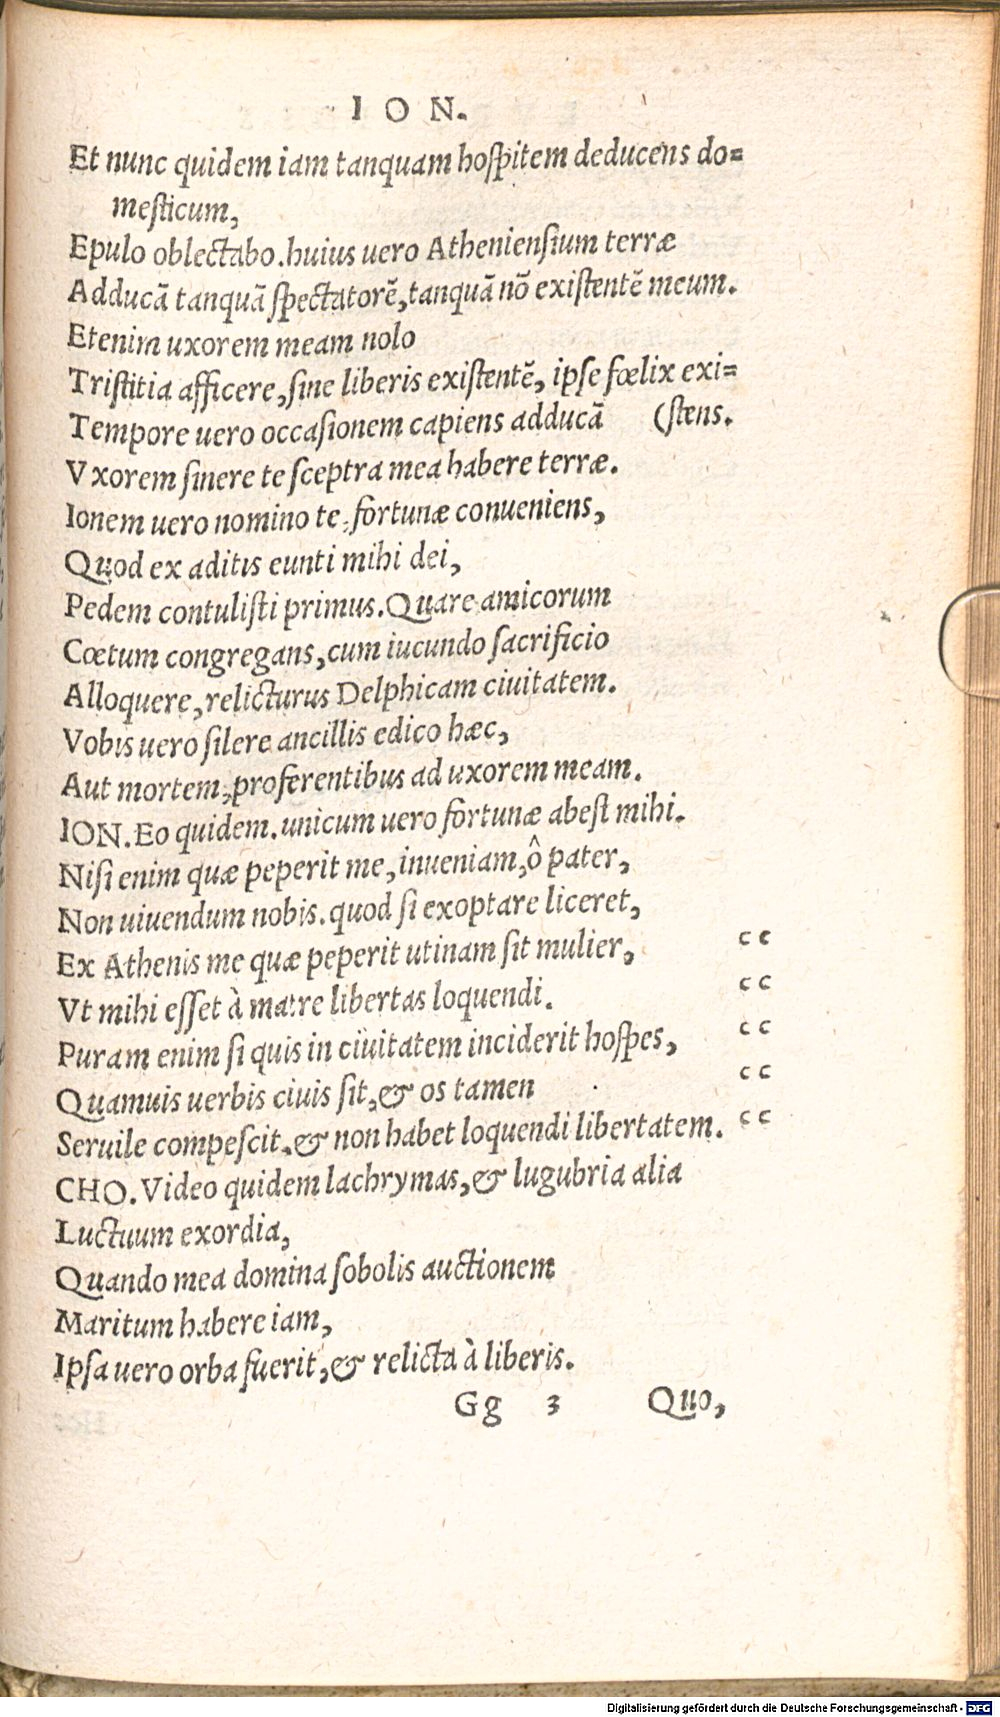 ION.
Et nunc quidem iam tanquam hoſpitem deducens do=
meſticum,
Epulo oblectabo. huius uero Athenienſium terræ
Adducã tanquã ſpectatorẽ, tanquã nõ exiſtentẽ meum.
Etenim uxorem meam nolo
Triſtitia afficere, ſine liberis exiſtentẽ, ipſe fœlix exi=
Tempore uero occaſionem capiens adducã (ſtens.
Vxorem ſinere te ſceptra mea habere terræ.
Ionem uero nomino te, fortunæ conueniens,
Quod ex aditis eunti mihi dei,
Pedem contuliſti primus. Quare amicorum
Cœtum congregans, cum iucundo ſacrificio
Alloquere, relicturus Delphicam ciuitatem.
Vobis uero ſilere ancillis edico hæc,
Aut mortem, proferentibus ad uxorem meam.
ION. Eo quidem. unicum uero fortunæ abeſt mihi.
Niſi enim quæ peperit me, inueniam, ô pater,
Non uiuendum nobis. quod ſi exoptare liceret,
Ex Athenis me quæ peperit utinam ſit mulier, cc
Vt mihi eſſet à matre libertas loquendi. cc
Puram enim ſi quis in ciuitatem inciderit hoſpes, cc
Quamuis uerbis ciuis ſit, & os tamen cc
Seruile compeſcit, & non habet loquendi libertatem. cc
CHO. Video quidem lachrymas, & lugubria alia
Luctuum exordia,
Quando mea domina ſobolis auctionem
Maritum habere iam,
Ipſa uero orba fuerit, & relicta à liberis.
Gg 3 Quo,
Digitalisierung gefördert durch die Deutsche Forschungsgemeinschaft - DFG